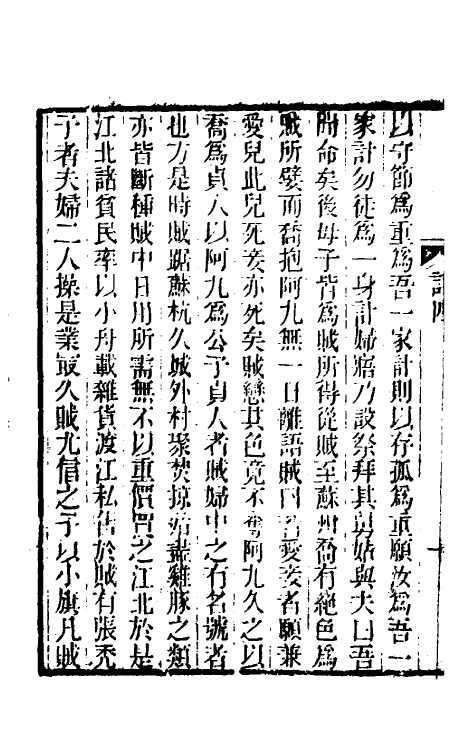 以守節爲重爲吾一家計則以存孤爲重願汝爲吾一
家計勿徒爲一身計婦寤乃設祭拜其舅姑與夫曰吾
聞命矣後母子皆爲賊所得從賊至蘇州喬有絕色爲
賊所嬖而喬抱阿九無一日離語賊曰若愛妾者願兼
愛兒此兒死妾亦死矣賊戀其色竟不奪阿九久之以
喬爲貞人以阿九爲公子貞人者賊婦中之有名號者
也方是時賊踞蘇杭久城外村聚焚掠殆盡雞豚之類
亦皆斷種賊中日用所需無不以重價買之江北於是
江北諸貧民率以小舟載雜貨渡江私售於賊有張禿
子者夫婦二人操是業最久賊尤信之予以小旗凡賊